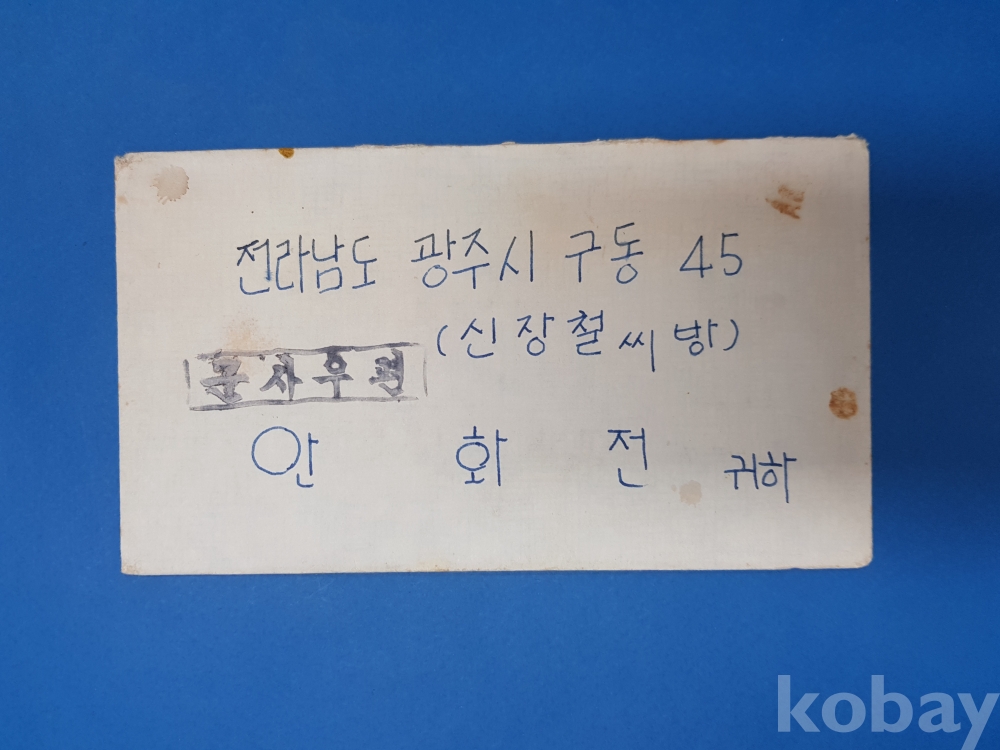 전라남도 광주시 구동 45
(신장철씨방)
군사우편
안 화 전 귀하
kobay